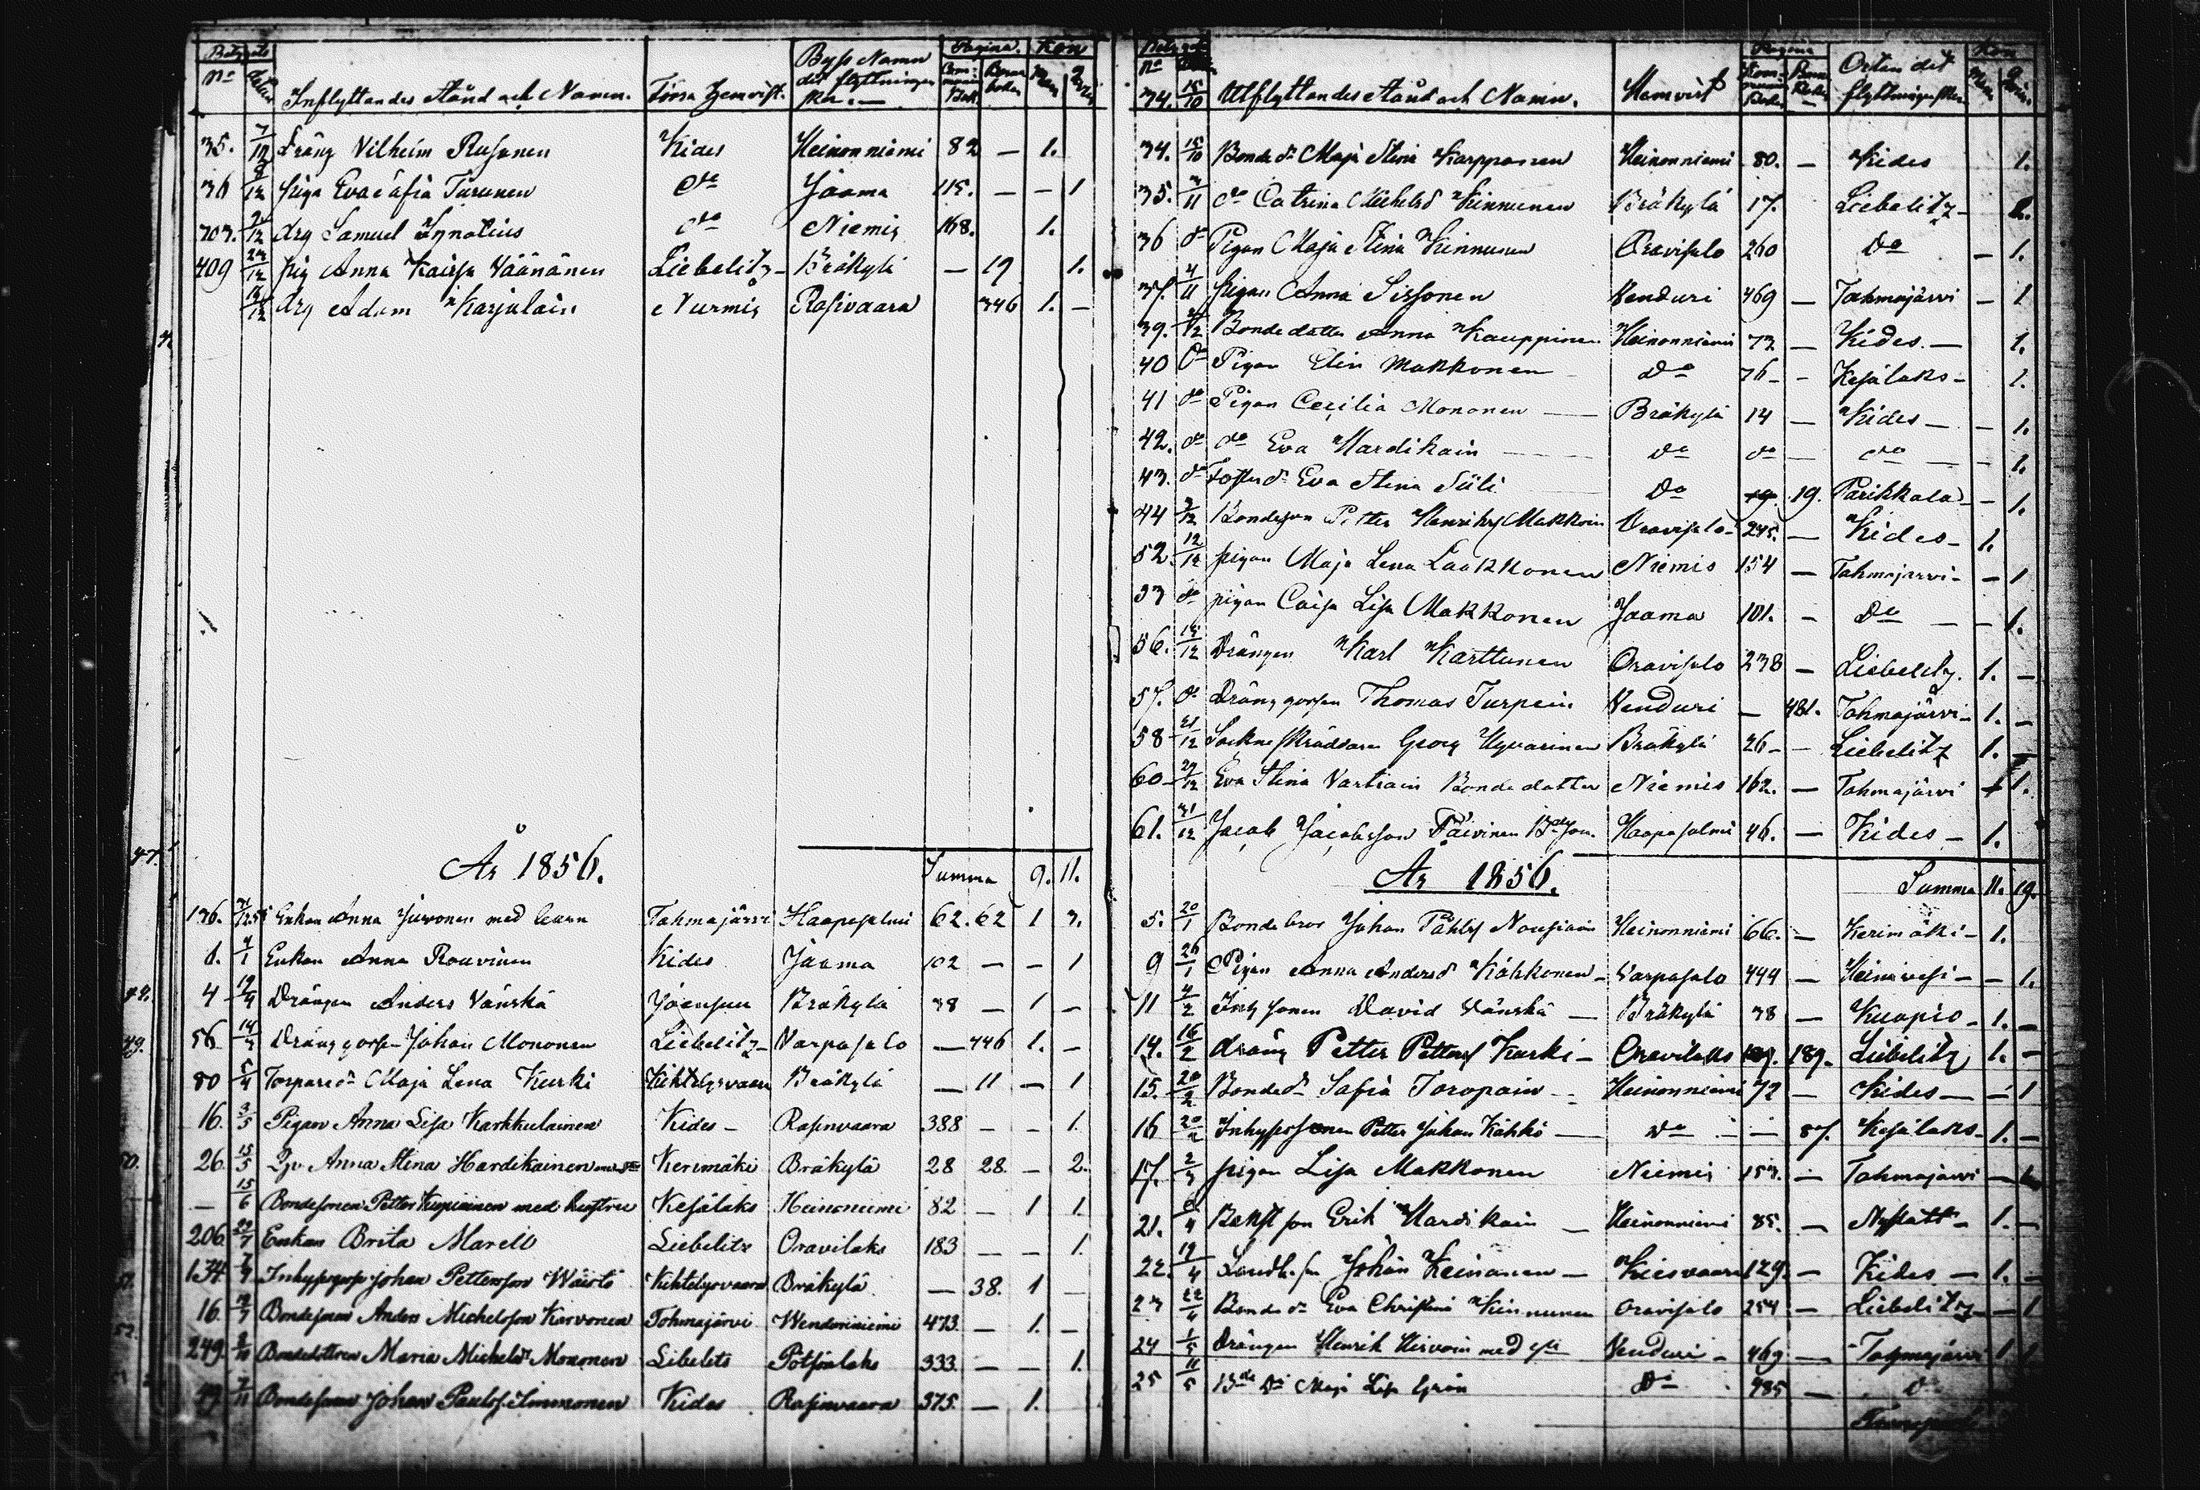 Inflyttandes stånd och Namn. Förra Hemvist. Byss Namn dit flyttningen sker. Pagina. Kön
35. 7/12 Dräng Vilhelm Rusanen Kides Heinoniemi 82 — 1.
36 8/12 piga Eva Cafia Turunen do Jaama 115. — — 1
303. 21/12 drg Samuel Ignatius do Niemis 168. 1.
409 24/12 pig Anna Kaisa Väänänen Liebelitz Bräkylä — 19 1.
drg Adam Karjalain Nurmis Rasivaara 346 1. —
Summa 9. 11.
År 1856.
136. Enkan Anna Juvonen med barn Tohmajärvi Haapasalmi 62. 62 1 3.
1. 4/1 Enkan Anna Rouvinen Kides Jaama 102 — — 1
4 Drängen Anders Vänskä Joensuu Bräkylä 38 — 1 —
56 Dräng gosse Johan Mononen Liebelitz Varpasalo — 446 1. —
80 5/4 Torpared. Maja Lena Kurki Kihtelysvaara Bräkylä — 11 — 1
16. 3/5 Pigan Anna Lisa Karkkulainen Kides Rasinvaara 388 — — 1.
26. 15/5 Anna Stina Hardikainen Kerimäki Bräkylä 28 28. — 2.
— 15/6 Bondesonen Petter Kupiainen med hustru Kesälaks Heinoniemi 82 — 1 1.
206. 22/7 Enkan Brita Marell Liebelits Oravilaks 183 — — 1.
134. Inhysesgoss Johan Petterson Wäistö Kihtelysvaara Bräkylä — 38. 1 —
16. Bondesonen Anders Michelsson Karvonen Tohmajärvi Wendoriniemi 473 — 1. —
249. Bondedottren Maria Michelsd. Mononen Libelits Pötsönlaks 333. — — 1.
49. Bondesonen Johan Paulss. Immonen Kides Rasinvaara 375. — 1.
34. 15/10 Utflyttandes stånd och Namn. Hemvist Pagina Orten dit flyttningen sker Kön
34. 15/10 Bonde dr Maja Stina Karppanen Heinonniemi 80. — Kides 1.
35. 3/11 do Catrina Michelsd Kinnunen Bräkylä 17. Liebelitz 1.
36 do Pigan Maja Stina Kinnunen Oravisalo 260 Do — 1.
37. 4/11 pigan Anna Sissonen Venduri 469 — Tohmajärvi — 1
39. Bonde dotter Anna Kauppinen Heinonniemi 73 — Kides — 1.
40 Do Pigan Elin Makkonen Do 76 — Kesälaks — 1.
41 do Pigan Cecilia Mononen Bräkylä 14 — Kides — 1.
42. do do Eva Hardikain do do — do — 1.
43. do Foster dr Eva Stina Siili Do 19. Parikkala — 1.
44 Bondeson Petter Henriks Makkoin Oravisalo 245. — Kides 1.
52. 12/12 pigan Maja Lena Laakkonen Niemis 154 — Tohmajarvi — 1
53 do pigan Caisa Lisa Makkonen Jaama 101. — Do — 1.
56. Drängen Karl Karttunen Oravisalo 238 — Liebelitz. 1. —
57. do Dräng gossen Thomas Turpein Venduri — 481. Tohmajärvi 1. —
58 21/12 Sockneskräddaren Georg Uyvarinen Bräkylä 26 — Liebelitz 1. —
60 27/12 Eva Stina Vartiain Bonde dotter Niemis 162. — Tohmajärvi 1.
61. 31/12 Jacob Jacobsson Päivinen Haapasalmi 46. — Kides — 1.
Summa 11. 19.
År 1856.
5. 20/1 Bonde bror Johan Påhls Nousiain Heinonniemi 66. — Kerimäki 1.
9 26/1 Pigan Anna Andersd Kähkonen Varpasalo 444 — Heinävesi — 1.
11 4/2 Inh sonen David Vänskä Bräkylä 38 — Kuopio 1. —
14. 16/2 dräng Petter Petters Kurki Oravilaks 189. Liebelitz 1. —
15. 20/2 Bonded Safia Toropain Heinonniemi 72 — Kides — 1
16 20/2 Inhyses sonen Petter Johan Kähkö Do — 87. Kesälaks 1. —
17. 2/3 pigan Lisa Makkonen Niemis 153. — Tohmajärvi —
21. Erik Hardikain Heinonniemi 85. — Nyslott 1. —
22. 19/4 Johan Keinanen Kiesvaara 129. — Kides — 1. —
23 22/4 Bonde dr Eva Christina Kinnunen Oravisalo 254 — Liebelitz — 1
24 1/5 Drängen Henrik Hirvoin med Venduri 469 — Tohmajärvi 1 1
25 11/5 Maja Lisa Grön Do 485 — Do